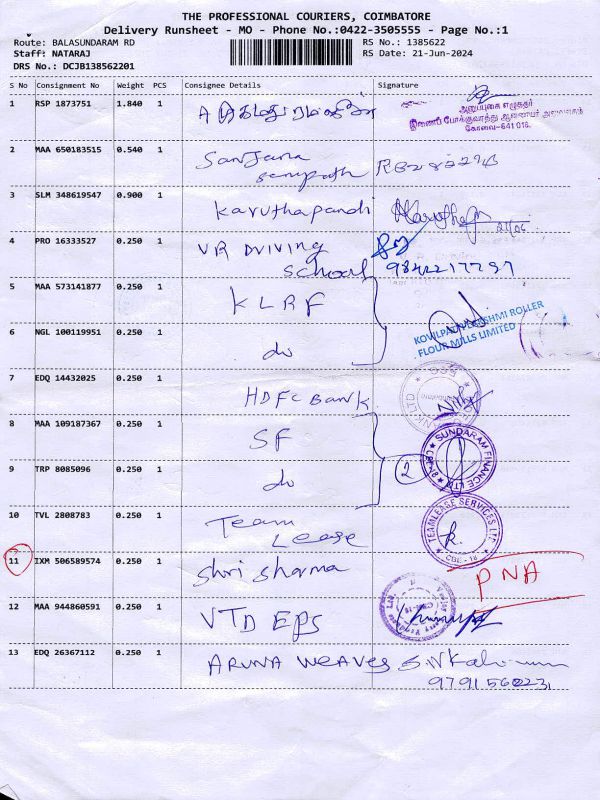 THE PROFESSIONAL COURIERS, COIMBATORE
Delivery Runsheet - MO - Phone No.:0422-3505555 - Page No.:1
Route: BALASUNDARAM RD
RS No.: 1385622
Staff: NATARAJ
RS Date: 21-Jun-2024
DRS No.: DCJB138562201
S No Consignment No Weight PCS Consignee Details Signature
1 RSP 1873751 1.840 1
அனுப்புகை எழுத்தர்
இணைப் போக்குவரத்து ஆணையர் அலுவலகம்
கோவை-641 018.
2 MAA 650183515 0.540 1 Sanjana
sampath
3 SLM 348619547 0.900 1 Karuthapandi
4 PRO 16333527 0.250 1 VR Driving
School 9842217797
5 MAA 573141877 0.250 1 KLRF
KOVILPATTI LAKSHMI ROLLER
FLOUR MILLS LIMITED
6 NGL 100119951 0.250 1 do
7 EDQ 14432025 0.250 1 HDFC Bank
8 MAA 109187367 0.250 1 SF
SUNDARAM FINANCE LTD
9 TRP 8085096 0.250 1 do 2
10 TVL 2808783 0.250 1 Team
Lease
TEAMLEASE SERVICES LTD
CBE - 18
11 IXM 506589574 0.250 1 Shri Sharma PNA
12 MAA 944860591 0.250 1 VTD EPS
13 EDQ 26367112 0.250 1 ARUNA WEAVES
9791560231